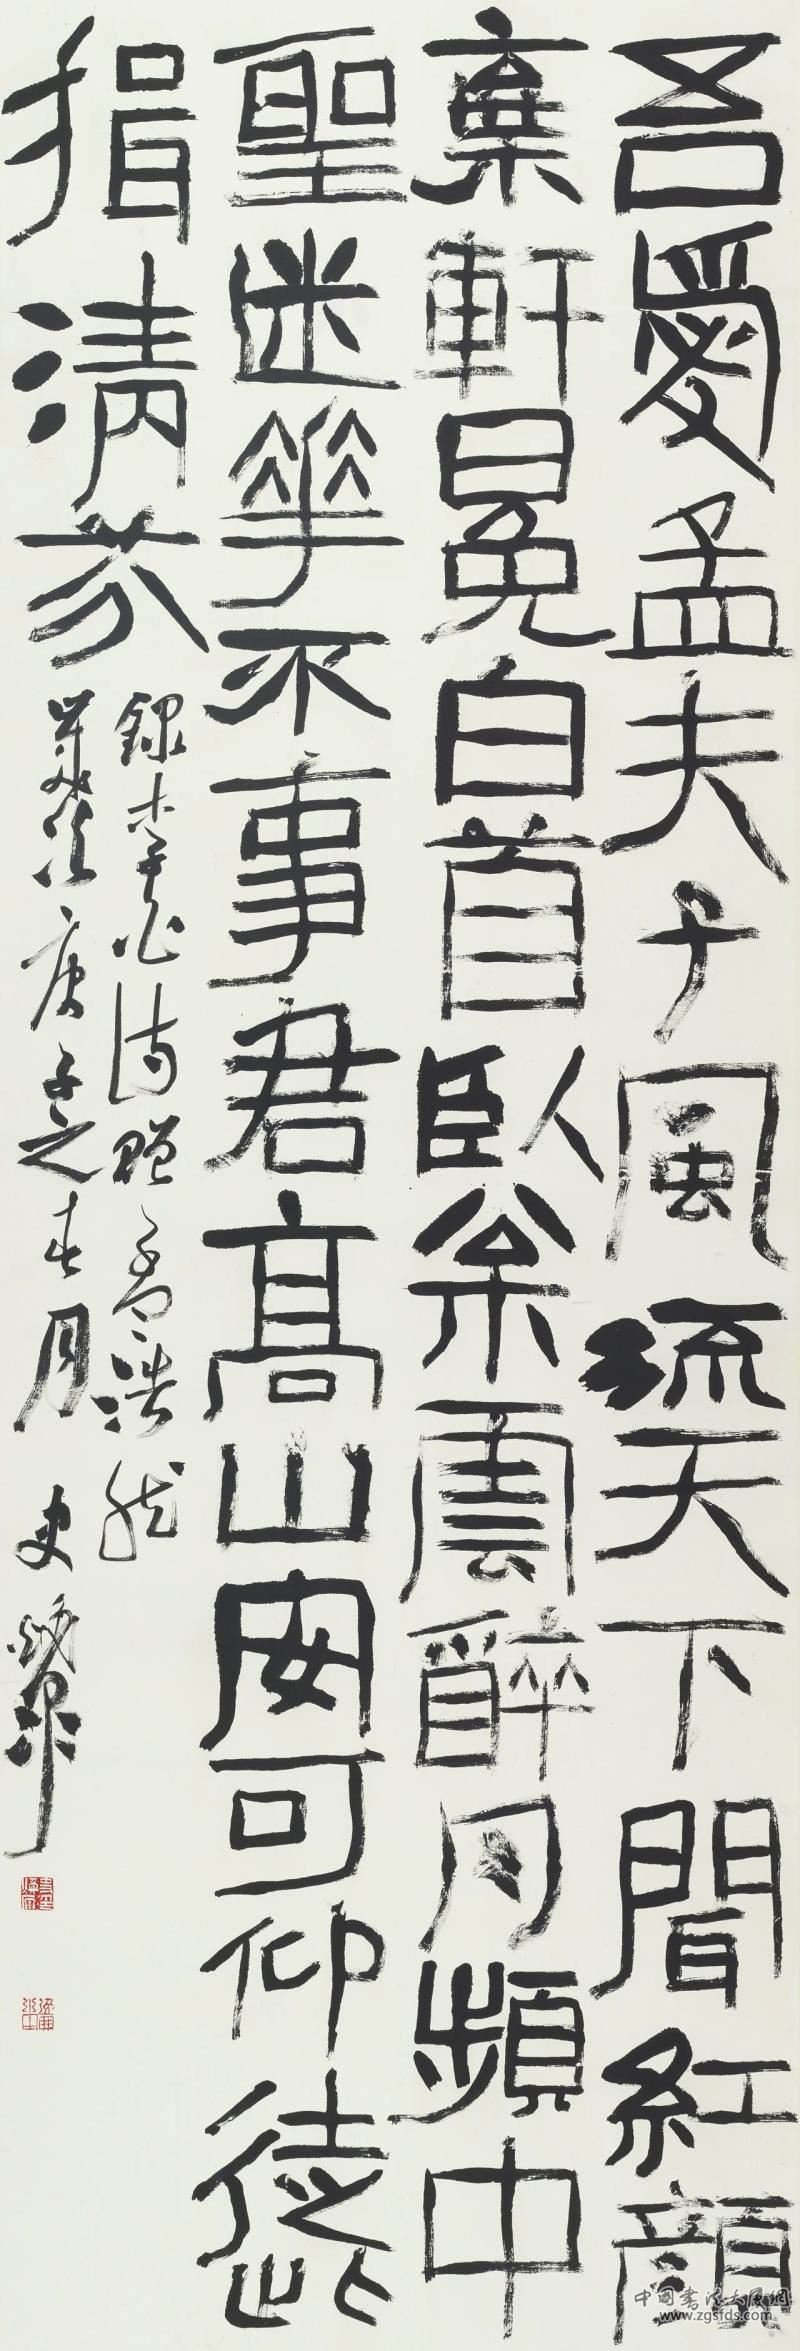 吾愛孟夫子風流天下聞紅顏
棄軒冕白首臥松雲醉月頻中
聖迷花不事君高山安可仰徒此
揖清芬
錄李白詩贈孟浩然
歲次庚子之春月 史
www.zgsfds.com